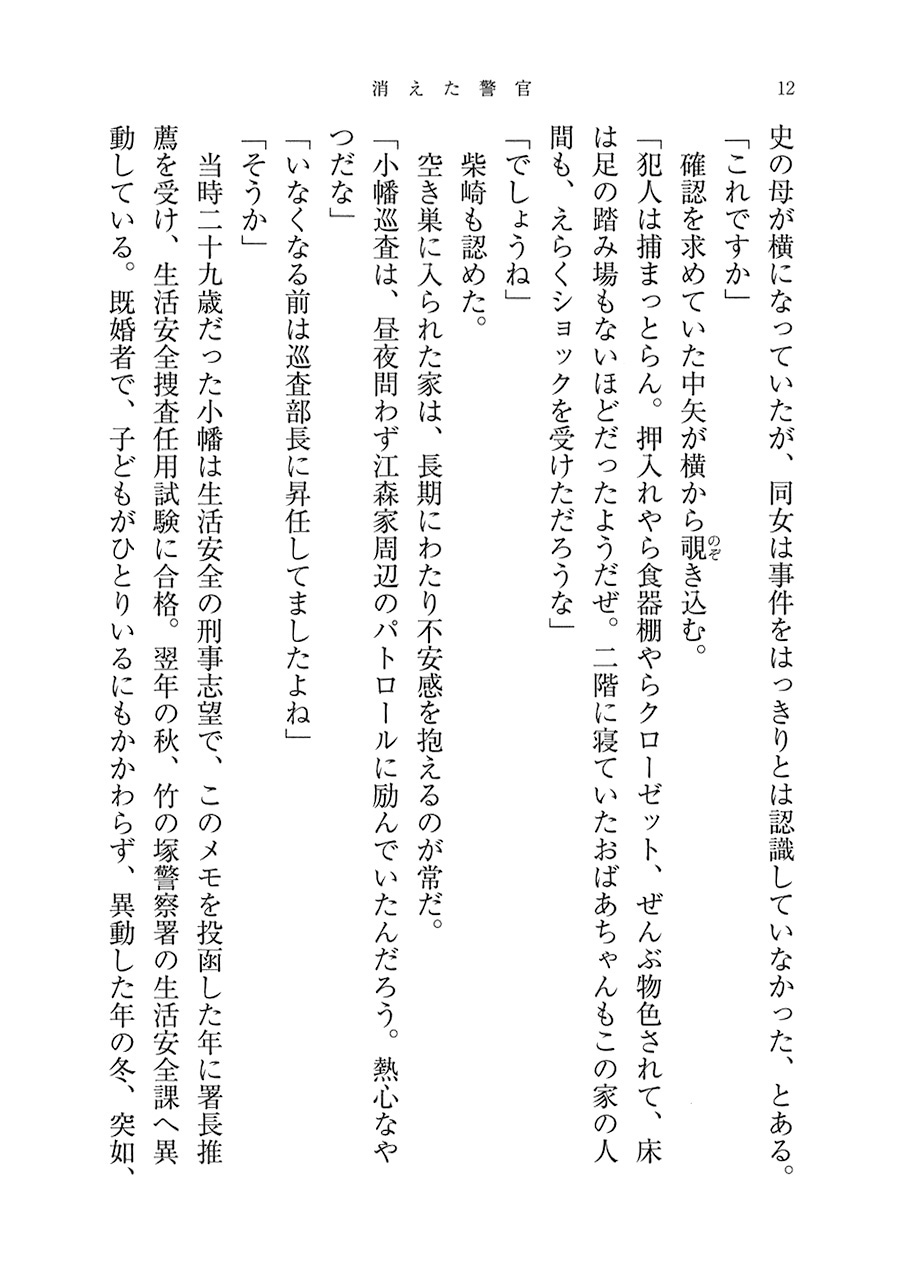 消えた警官
12
史の母が横になっていたが、同女は事件をはっきりとは認識していなかった、とある。
「これですか」
　確認を求めていた中矢が横から覗き込む。
のぞ
「犯人は捕まっとらん。押入れやら食器棚やらクローゼット、ぜんぶ物色されて、床
は足の踏み場もないほどだったようだぜ。二階に寝ていたおばあちゃんもこの家の人
間も、えらくショックを受けただろうな」
「でしょうね」
　柴崎も認めた。
　空き巣に入られた家は、長期にわたり不安感を抱えるのが常だ。
「小幡巡査は、昼夜問わず江森家周辺のパトロールに励んでいたんだろう。熱心なや
つだな」
「いなくなる前は巡査部長に昇任してましたよね」
「そうか」
　当時二十九歳だった小幡は生活安全の刑事志望で、このメモを投函した年に署長推
薦を受け、生活安全捜査任用試験に合格。翌年の秋、竹の塚警察署の生活安全課へ異
動している。既婚者で、子どもがひとりいるにもかかわらず、異動した年の冬、突如、